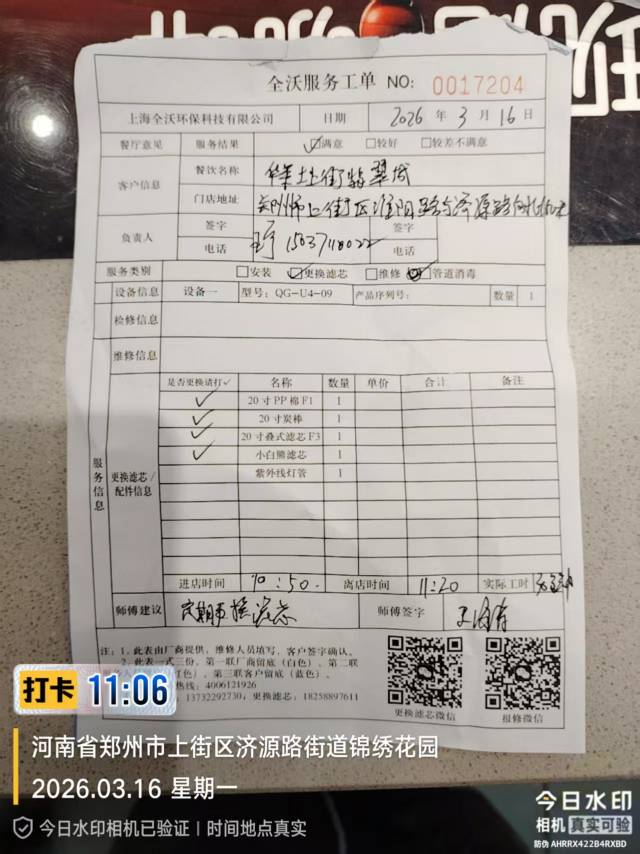 全沃服务工单 NO: 0017204
上海全沃环保科技有限公司 日期 2026 年 3 月 16 日
餐厅意见 服务结果 ☑满意 □较好 □较差不满意
客户信息 餐饮名称 上街翡翠城
门店地址 郑州市上街区淮阳路与济源路
负责人 签字 签字
电话 15037118022 电话
服务类别 □安装 ☑更换滤芯 □维修 ☑管道消毒
设备信息 设备一 型号: QG-U4-09 产品序列号: 数量 1
检修信息
维修信息
服务信息
更换滤芯/配件信息
是否更换请打✓ 名称 数量 单价 合计 备注
✓ 20寸PP棉F1 1
✓ 20寸炭棒 1
✓ 20寸叠式滤芯F3 1
✓ 小白熊滤芯 1
紫外线灯管 1
进店时间 10:50. 离店时间 11:20 实际工时
师傅建议 定期更换滤芯 师傅签字
注: 1. 此表由厂商提供, 维修人员填写, 客户签字确认。
2. 此表一式三份, 第一联厂商留底(白色)、第二联
红色)、第三联客户留底(蓝色)。
热线: 4006121926
13732292730, 更换滤芯: 18258897611
更换滤芯微信 报修微信
打卡 11:06
河南省郑州市上街区济源路街道锦绣花园
2026.03.16 星期一
今日水印相机已验证 | 时间地点真实
今日水印
相机 真实可验
防伪 AHRRX422B4RXBD